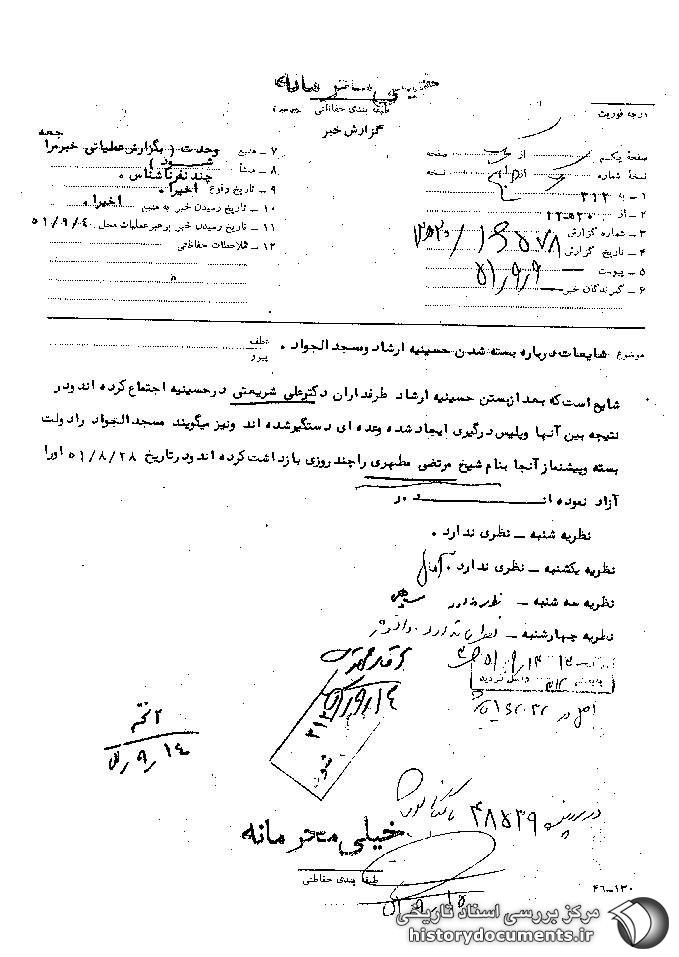 خیلی محرمانه
طبقه بندی حفاظتی
گزارش خبر
درجه فوریت
صفحه یکم از صفحه
نسخه شماره از نسخه
۱ – به ۳۱۲
۲ – از ۲۲۵۳۰
۳ – شماره گزارش
۴ – تاریخ گزارش ۵۱/۹/۹
۵ – پیوست
۶ – گیرندگان خبر
۷ – منبع وحدت (بگزارش عملیاتی خبر مراجعه
شود)
۸ – منشأ چند نفر ناشناس.
۹ – تاریخ وقوع اخیرا.
۱۰ – تاریخ رسیدن خبر به منبع اخیرا.
۱۱ – تاریخ رسیدن خبر برهبر عملیات محل ۵۱/۹/۰۴
۱۲ – ملاحظات حفاظتی
موضوع شایعات درباره بسته شدن حسینیه ارشاد ومسجد الجواد.
عطف
پیرو
شایع است که بعد از بستن حسینیه ارشاد طرفداران دکترعلی شریعتی در حسینیه اجتماع کرده اند ودر
نتیجه بین آنها وپلیس درگیری ایجاد شده وعده ای دستگیر شده اند ونیز میگویند مسجد الجواد را دولت
بسته وپیشنماز آنجا بنام شیخ مرتضی مطهری را چند روزی بازداشت کرده اند ودر تاریخ ۵۱/۸/۲۸ اورا
آزاد نموده انـــد
نظریه شنبه – نظری ندارد.
نظریه یکشنبه – نظری ندارد.
نظریه سه شنبه – نظری ندارد
نظریه چهارشنبه – نظری ندارد
۳۱۲
۵۱/۹/۱۴
۵۱/۹/۱۴
در پرونده ۴۸۵۳۹
خیلی محرمانه
طبقه بندی حفاظتی
۴۶–۱۳۰
مرکز بررسی اسناد تاریخی
historydocuments.ir